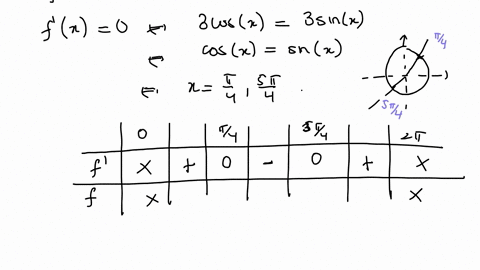 f'(x) = 0 ⇐ 3cos(x) = 3sin(x)
⇐ cos(x) = sin(x)
⇐ x = π/4, 5π/4.
π/4
5π/4
0 π/4 5π/4 2π
f' X + 0 - 0 + X
f X X